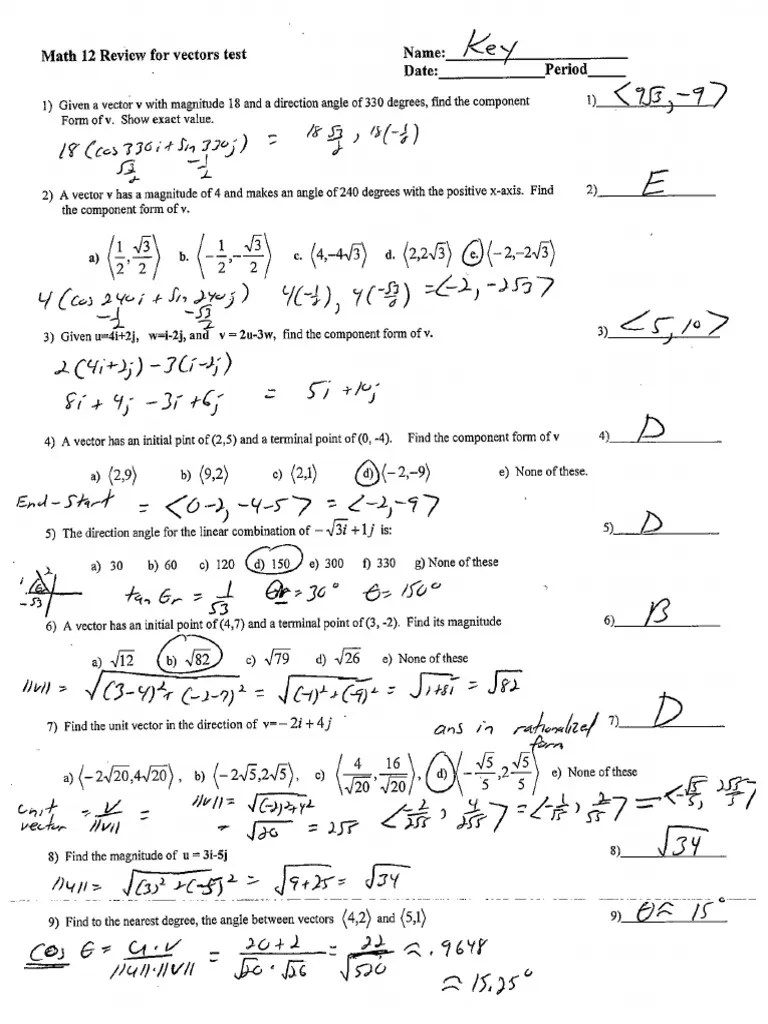 Math 12 Review for vectors test Name: Key
Date:____________ Period____
1) Given a vector v with magnitude 18 and a direction angle of 330 degrees, find the component 1) <9√3, -9>
Form of v. Show exact value.
18 (cos 330i + sin 330j) = 18 √3/2, 18(-1/2)
√3/2 -1/2
2) A vector v has a magnitude of 4 and makes an angle of 240 degrees with the positive x-axis. Find 2) E
the component form of v.
a) ⟨1/2, √3/2⟩ b. ⟨-1/2, -√3/2⟩ c. ⟨4,-4√3⟩ d. ⟨2,2√3⟩ e. ⟨-2,-2√3⟩
4 (cos 240i + sin 240j) 4(-1/2), 4(-√3/2) = <-2, -2√3>
-1/2 -√3/2
3) Given u=4i+2j, w=i-2j, and v = 2u-3w, find the component form of v. 3) <5, 10>
2(4i+2j) - 3(i-2j)
8i + 4j - 3i + 6j = 5i + 10j
4) A vector has an initial pint of (2,5) and a terminal point of (0, -4). Find the component form of v 4) D
a) ⟨2,9⟩ b) ⟨9,2⟩ c) ⟨2,1⟩ d) ⟨-2,-9⟩ e) None of these.
End - Start = <0-2, -4-5> = <-2, -9>
5) The direction angle for the linear combination of -√3i + 1j is: 5) D
a) 30 b) 60 c) 120 d) 150 e) 300 f) 330 g) None of these
1 2 θr -√3 tan θr = 1/√3 θr = 30° θ = 150°
6) A vector has an initial point of (4,7) and a terminal point of (3, -2). Find its magnitude 6) B
a) √12 b) √82 c) √79 d) √26 e) None of these
||v|| = √((3-4)² + (-2-7)²) = √((-1)² + (-9)²) = √(1+81) = √82
7) Find the unit vector in the direction of v=-2i + 4j ans in rationalized form 7) D
a) ⟨-2√20,4√20⟩, b) ⟨-2√5,2√5⟩, c) ⟨4/√20, 16/√20⟩, d) ⟨-√5/5, 2√5/5⟩ e) None of these
unit vector = v/||v|| = ||v|| = √((-2)²+4²) = √20 = 2√5 <-2/2√5, 4/2√5> = <-1/√5, 2/√5> = <-√5/5, 2√5/5>
8) Find the magnitude of u = 3i-5j 8) √34
||u|| = √((3)² + (-5)²) = √(9+25) = √34
9) Find to the nearest degree, the angle between vectors ⟨4,2⟩ and ⟨5,1⟩ 9) θ ≈ 15°
Cos θ = u·v/||u||·||v|| = 20+2/√20·√26 = 22/√520 ≈ .9648
≈ 15.25°